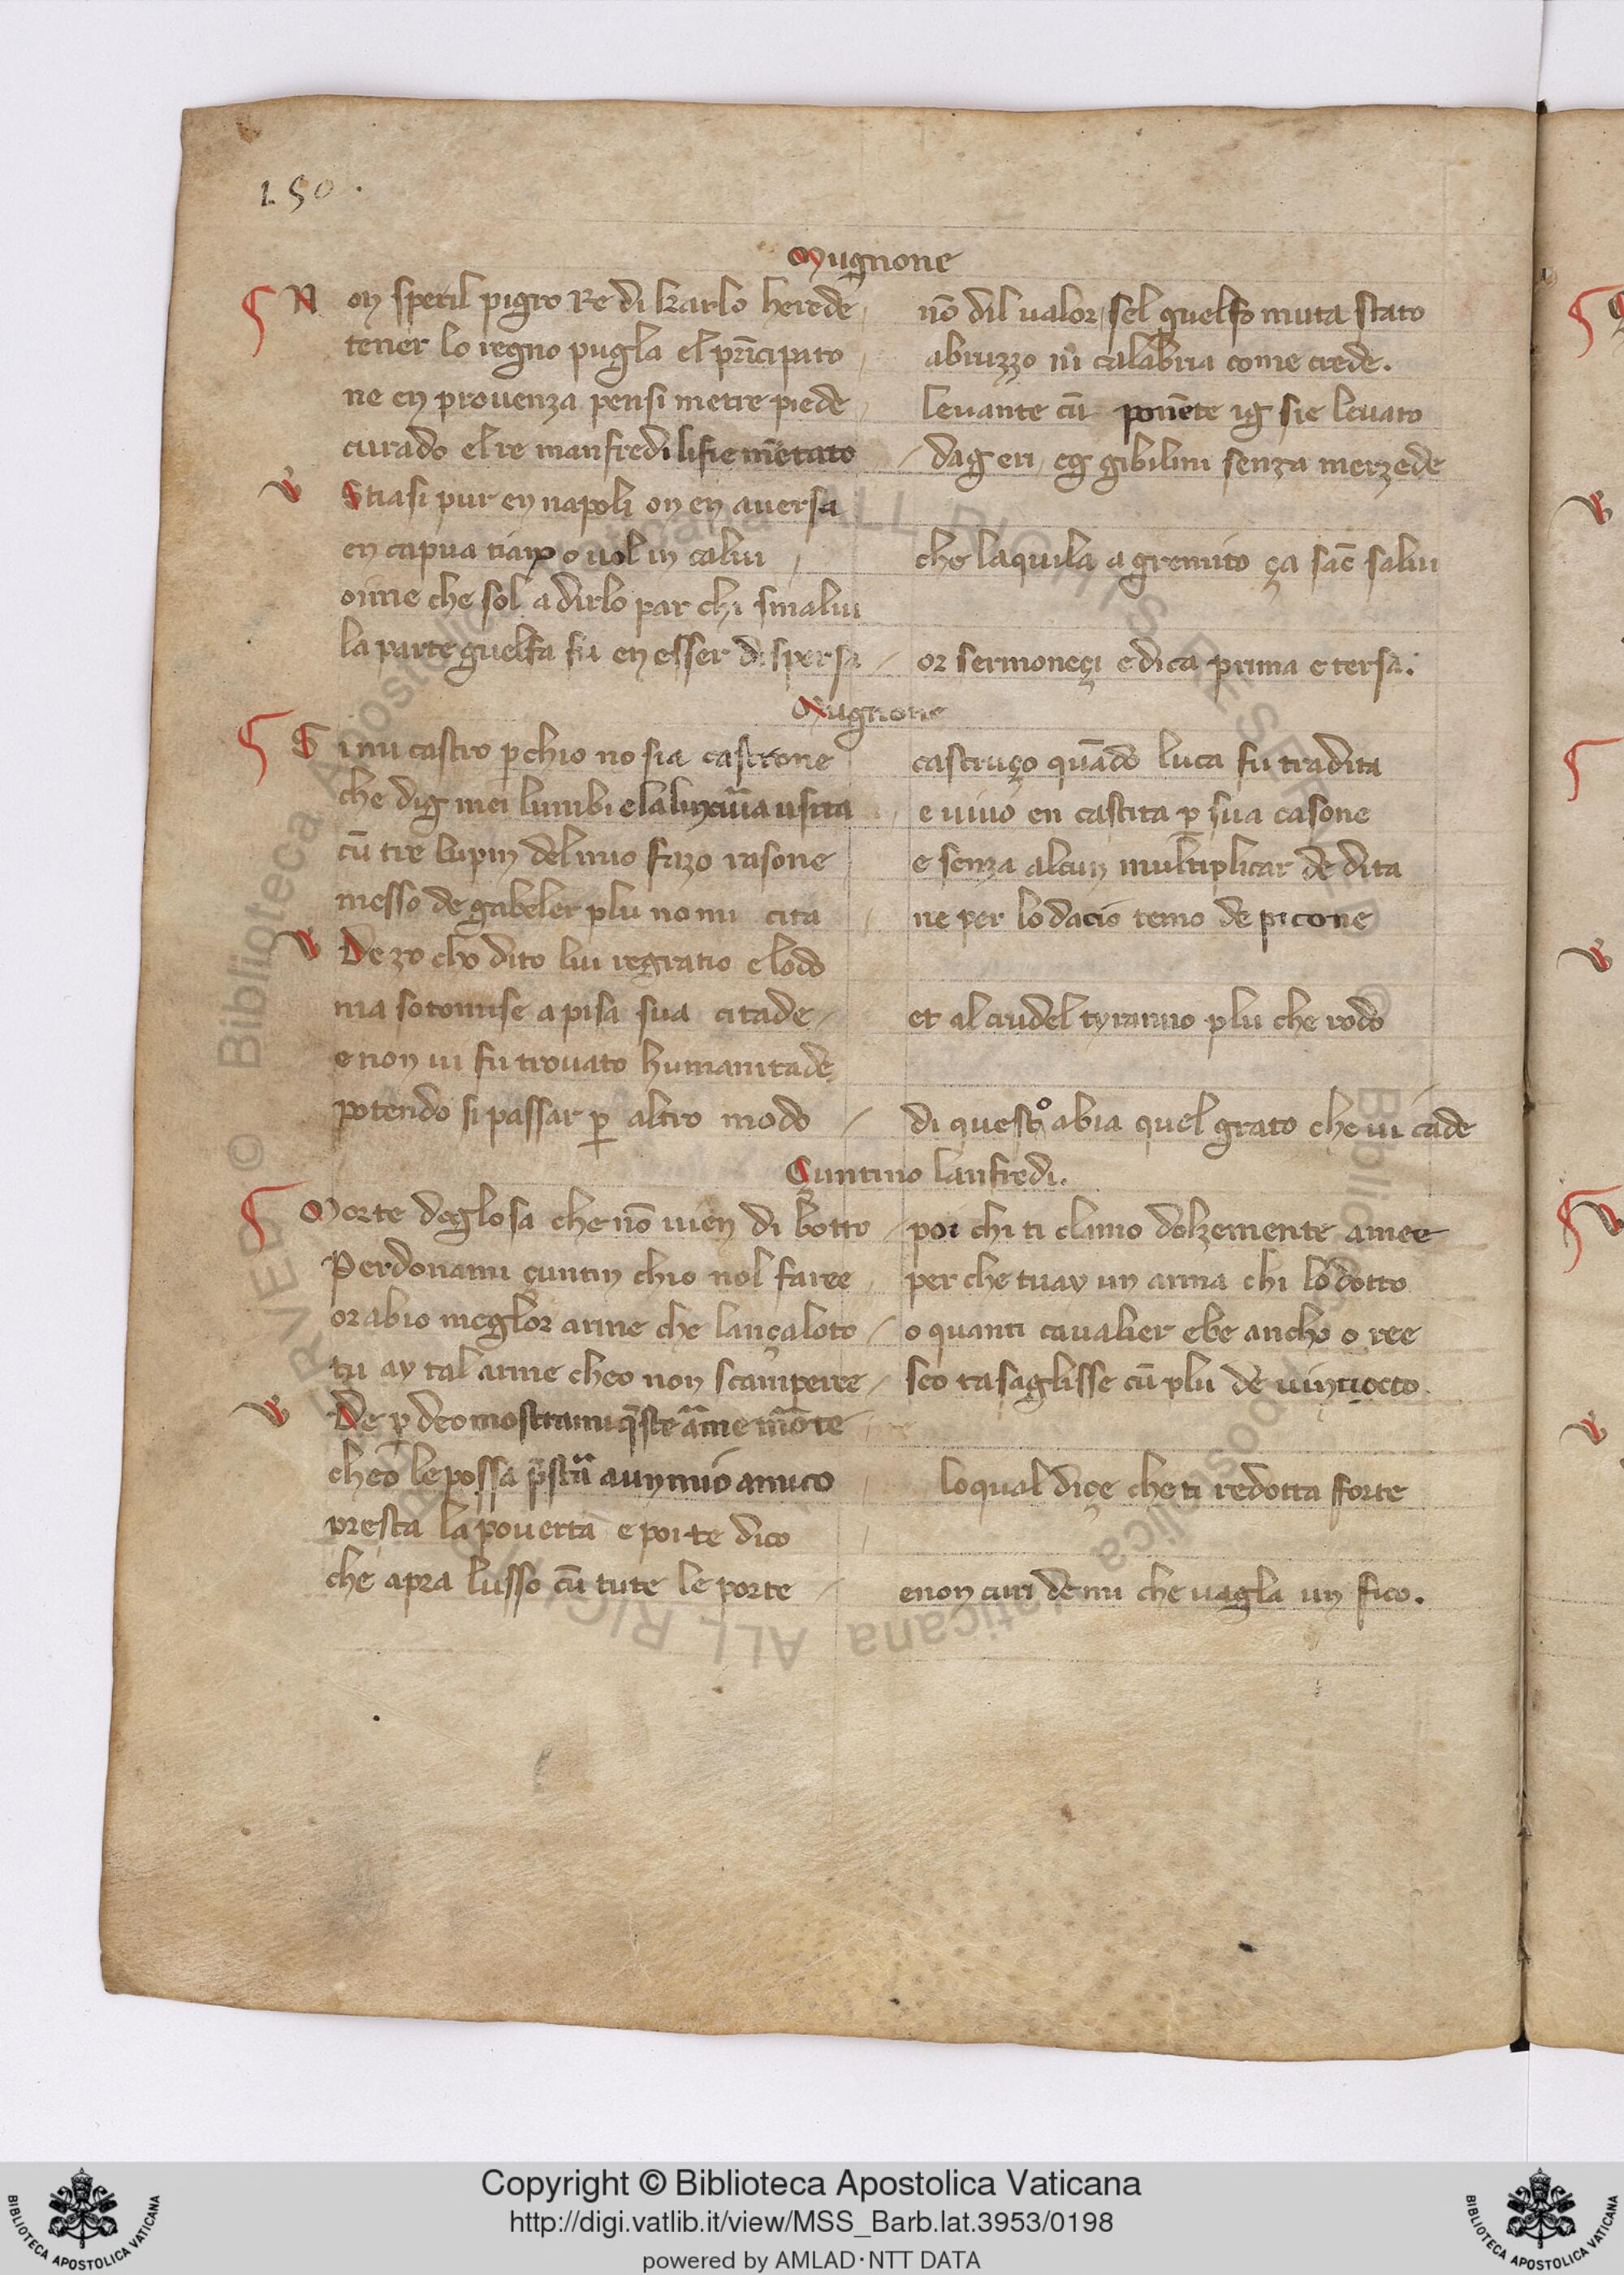 150.
Mugnone
Non speril pigro Re di karlo herede nō dil ualor sel guelfo muta stato
tener lo regno pugla el prīcipato abruzzo nī calabria come crede.
ne en prouenza pensi metre piede leuante cū ponēte ig sie leuato
curado el re manfredi li fie mētato dag eri, eg gibilini senza merzede
Stiasi pur en napoli on en auersa
en capua tiano o uol in calui che laquila a gremito ça sāc salui
oime che sol a dirlo par chi smalui
la parte guelfa fu en esser dispersa or sermoneçi e dica prima e tersa.
Mugnone
Simi castro p chio no sia castrone castruço quādo luca fu tradita
che dig mei lumbi e la usita e uiuo en castita p sua casone
cū tre lupin del mio fazo rasone e senza alcun multiplicar de dita
messo de gabeler plu no mi cita ne per lo dacio temo de picone
De zo cho dito lui regratio e lodo
ma sotomise a pisa sua citade et al crudel tyranno plu che rodo
e non ui fu trouato humanitade
potendo si passar p altro modo di questo abia quel grato che ui cade
Çuntino lanfredi.
Morte doglosa che nō uien di botto poi chi ti clamo dolzemente amee
Perdonami çuntin chio nol faree per che tu ay un arma chi lo dotto
or abio meglor arme che lançaloto o quanti caualier ebe ancho o ree
tu ay tal arme cheo non scamperee seo tasaglisse cū plu de uintiocto
De p deo mostrami q̄ste āme morte
cheo le possa a un mio amico lo qual diçe che ti redotta forte
presta la pouerta e por te dico
che apra lusso cū tute le porte e non curi de mi che uagla un fico.
Copyright © Biblioteca Apostolica Vaticana
http://digi.vatlib.it/view/MSS_Barb.lat.3953/0198
powered by AMLAD·NTT DATA
BIBLIOTECA APOSTOLICA VATICANA
BIBLIOTECA APOSTOLICA VATICANA